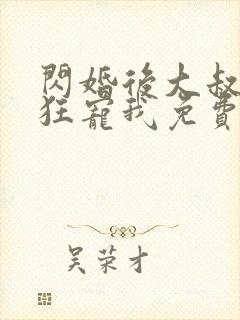 閃婚後大叔
狂寵我免費
吴荣才